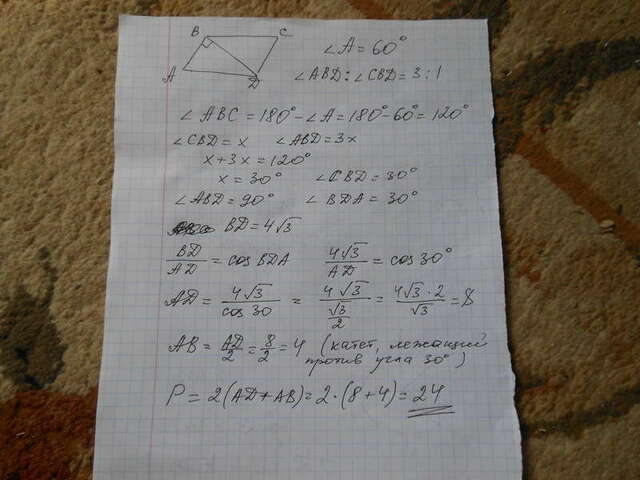 B C
A D
∠A = 60°
∠ABD : ∠CBD = 3 : 1
∠ABC = 180° - ∠A = 180° - 60° = 120°
∠CBD = x ∠ABD = 3x
x + 3x = 120°
x = 30° ∠CBD = 30°
∠ABD = 90° ∠BDA = 30°
BD = 4√3
BD/AD = cos BDA 4√3/AD = cos 30°
AD = 4√3/cos 30 = 4√3/(√3/2) = 4√3 · 2/√3 = 8
AB = AD/2 = 8/2 = 4 (катет, лежащий
против угла 30°)
P = 2(AD + AB) = 2 · (8 + 4) = 24